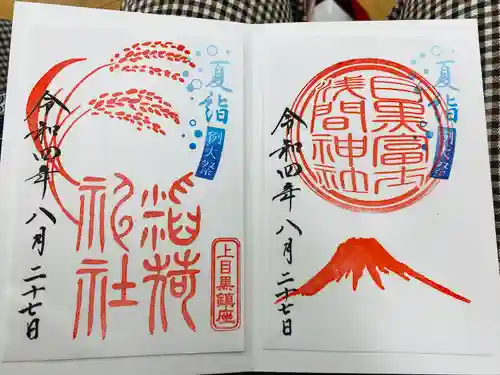 夏詣
例大祭
目黒富士
浅間神社
令和四年八月二十七日
夏詣
例大祭
上目黒鎮座
稲荷
神社
令和四年八月二十七日